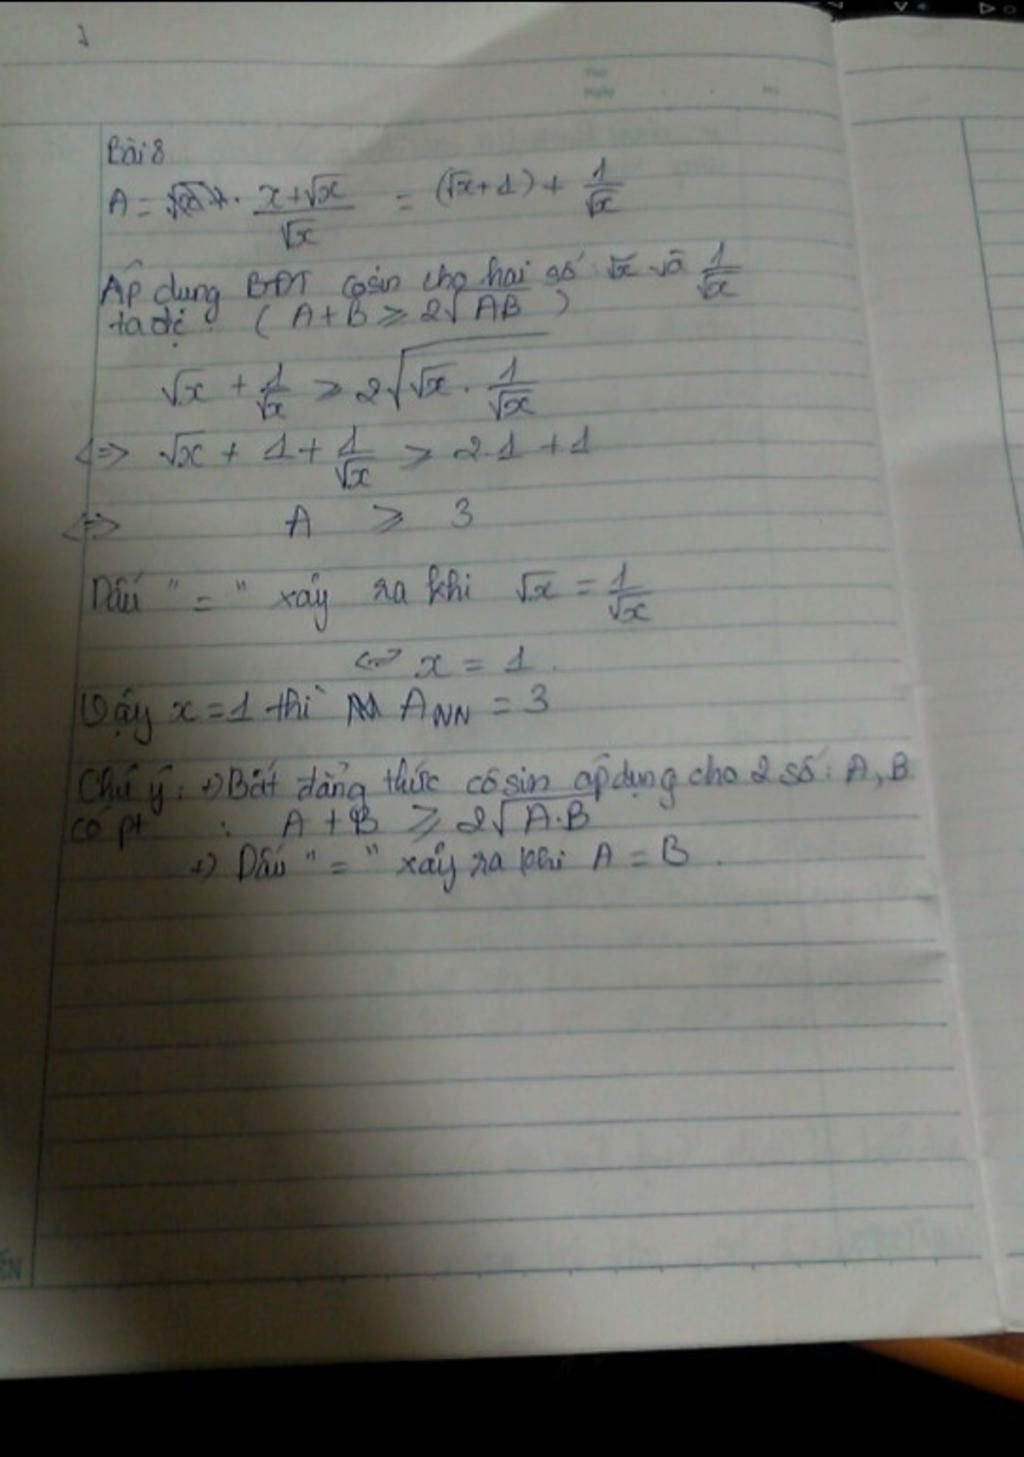 Bài 8
A = x+√x / √x = (√x+1) + 1/√x
Áp dụng BĐT cosin cho hai số √x và 1/√x
ta đc (A+B ≥ 2√AB)
√x + 1/√x ≥ 2√(√x . 1/√x)
<=> √x + 1 + 1/√x ≥ 2.1 + 1
<=> A ≥ 3
Dấu "=" xảy ra khi √x = 1/√x
<=> x = 1.
Vậy x = 1 thì A_NN = 3
Chú ý: +) Bất đẳng thức cosin áp dụng cho 2 số: A, B
có pt : A + B ≥ 2√A.B
+) Dấu "=" xảy ra khi A = B.